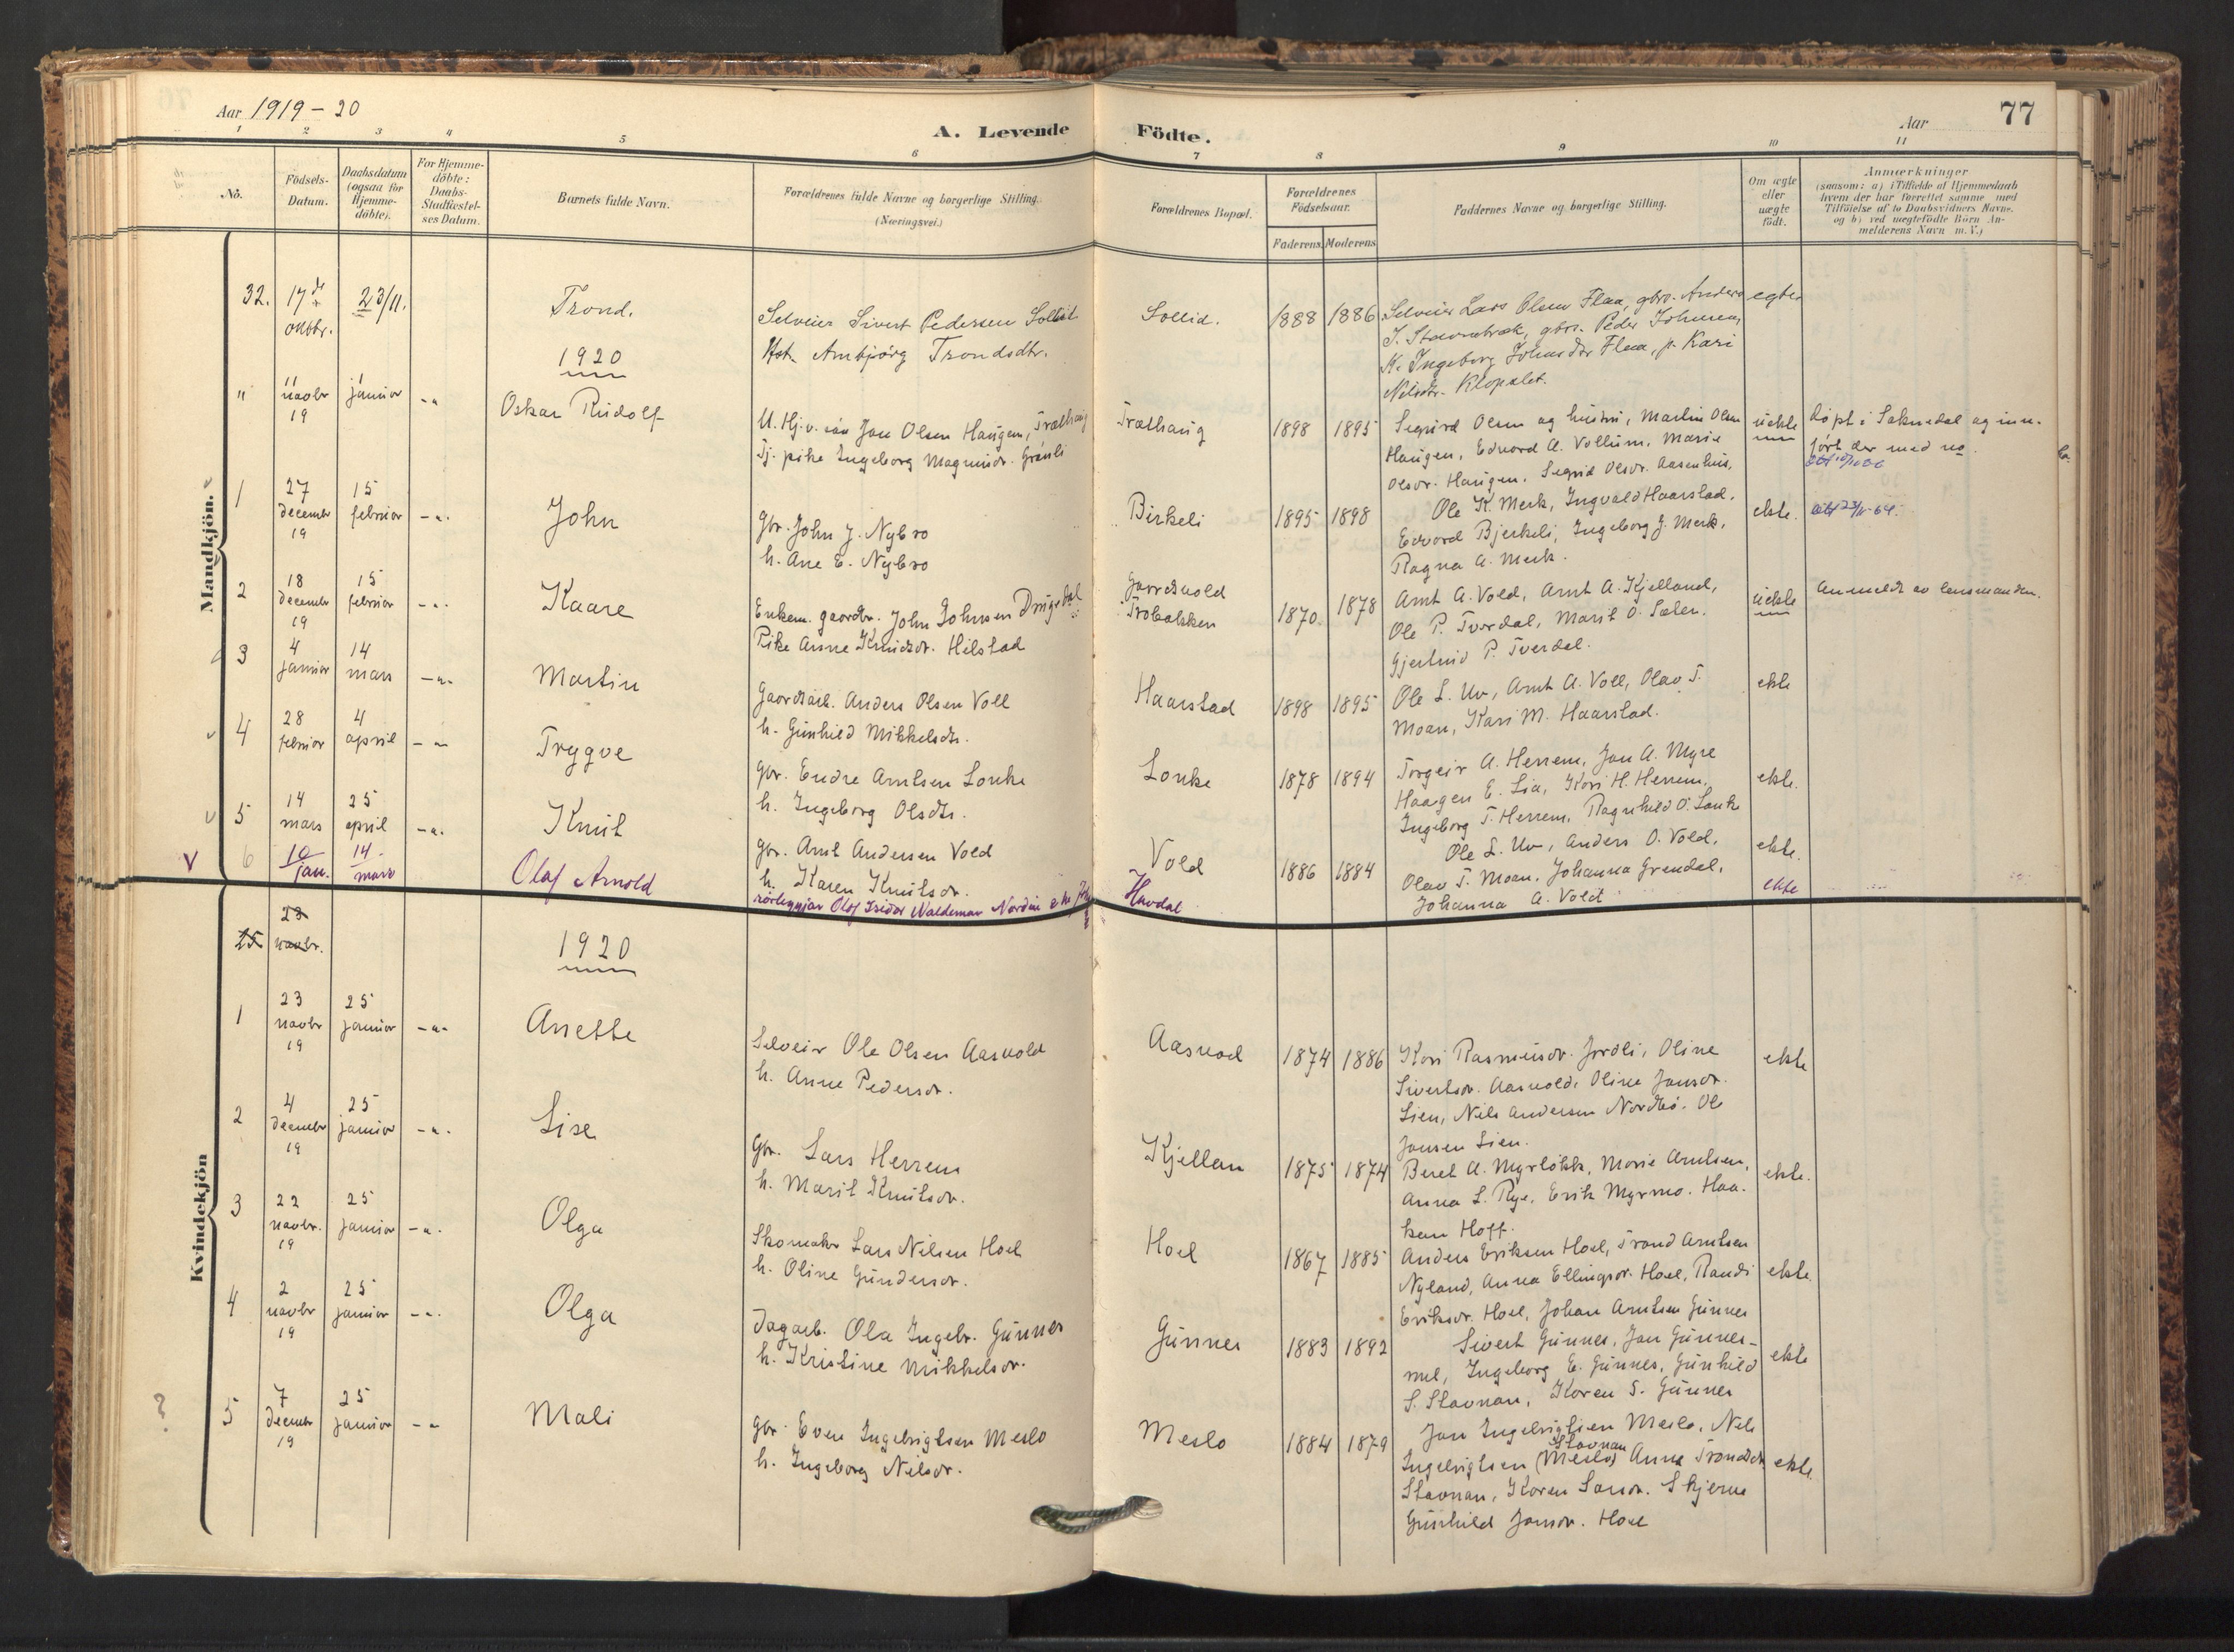 Aar 1919 - 20
A. Levende Födte.
Aar
77
1 2 3 4 5 6 7 8 9 10 11
No.
Födsels-Datum.
Daabsdatum (ogsaa for Hjemme-döbte).
For Hjemme-döbte: Daabs-Stadfæstel-ses Datum.
Barnets fulde Navn.
Forældrenes fulde Navne og borgerlige Stilling. (Næringsvei.)
Forældrenes Bopæl.
Forældrenes Födselsaar.
Faderens. Moderens
Faddernes Navne og borgerlige Stilling.
Om ægte eller uægte födt.
Anmærkninger
(saasom: a) i Tilfælde af Hjemmedaab
hvem der har forrettet samme med
Tilföielse af to Daabsvidners Navne.
og b) ved uægtefödte Börn An-
melderens Navn m. V.)
Mandkjön.
32. 17de oktbr. 23/11. Trond.
Selveier Sivert Pedersen Sollid
Ambjörg Trondsdtr.
Sollid. 1888 1886
Selveier Lars Olsen Flaa, gbr. Anders
J. Stavnebrek, gbr. Peder Johnsen,
K. Ingeborg Johnsdtr Flaa, p. Kari
Nilsdtr. Klopslet.
egte
1920
" 11 novbr 19 1 januar -"- Oskar Rudolf
U. Hj. v. Jon Olsen Haugen, Træthaug
Tj. pike Ingeborg Magnusdr. Grønli
Træthaug 1898 1895
Sigurd Olsen og hustru, Martin Olsen
Haugen, Edvard A. Vollum, Marie
Olsdr. Haugen. Segrid Olsdr. Aasenhus.
uekte
Døpt i Soknedal og inn-
ført der med no.
1 27 decembr 19 15 februar -"- John
gbr. John J. Nybro
h. Ane E. Nybro
Birkeli 1895 1898
Ole K. Merk, Ingvald Haarstad.
Edvard Bjerkeli, Ingeborg J. Merk.
Ragna A. Merk.
ekte.
2 18 decembr 19 15 februar -"- Kaare
Enkem. gaardbr. John Johnsen Drugudal
Pike Anne Knudsdr. Hilstad
Gaardsvold
Trobakken 1870. 1878
Arnt A. Vold, Arnt A. Kjelland,
Ole P. Tverdal, Marit O. Sæler.
Gjertrud P. Tverdal.
uekte
Anmeldt av lensmanden.
3 4 januar 14 mars -"- Martin
Gaardsarb. Anders Olsen Voll
h. Gunhild Mikkelsdtr.
Haarstad 1898 1895
Ole L. Uv, Arnt A. Voll, Olav T.
Moan, Kari M. Haarstad.
ekte
4 28 februar 4 april -"- Trygve
gbr. Endre Arntsen Lonke
h. Ingeborg Olsdtr.
Lonke 1878 1894
Torgeir A. Herrem, Jon A. Myre
Haagen E. Lia, Kari H. Herrem,
Ingeborg T. Herrem, Ragnhild O. Lonke
ekte.
5 14 mars 25 april -"- Knut
gbr. Arnt Andersen Vold
h. Karen Knutsdr.
Vold 1886 1884
Ole L. Uv, Anders O. Vold,
Olav T. Moan, Johanna Grendal,
Johanna A. Vold
ekte.
V 6 10 jan. 14 mars Olaf Arnold
rörleggjar Olaf Isidor Waldemar Nordin
Havdal
ekte
Kvindekjön
25 23 novbr.
1920
1 23 novbr 19 25 januar -"- Anette
Selveir Ole Olsen Aasvold
h. Anne Pedersdr.
Aasvod 1874 1886
Kari Rasmusdr. Jordli, Oline
Sivertsdr. Aasvold, Oline Jonsdr.
Lien, Nils Andersen Nordbö. Ole
Jonsen Lien.
ekte
2 4 decembr 19 25 januar -"- Lise
gbr. Lars Herrem
h. Marit Knutsdr.
Kjellan 1875 1874
Beret A. Myrlökk, Marie Arntsen,
Anna L. Rye, Erik Myrmo. Haa-
kon Hoff.
ekte.
3 22 novbr. 19 25 januar -"- Olga
Skomaker Lars Nilsen Hoel
h. Oline Gundersdr.
Hoel 1867 1885
Anders Eriksen Hoel, Trond Arntsen
Nyland, Anna Ellingsdr. Hoel, Randi
Eriksdr. Hoel, Johan Arntsen Gunnes
ekte.
4 2 novbr 19 25 januar -"- Olga
Dagarb. Ola Ingebr. Gunnes
h. Kristine Mikkelsdr.
Gunnes 1883 1892
Sivert Gunnes, Jon Gunnes-
mel, Ingeborg E. Gunnes, Gunhild
S. Stavnan, Karen S. Gunnes
ekte
? 5 7 decembr 19 25 januar -"- Mali
gbr. Even Ingebrigtsen Meslo
h. Ingeborg Nilsdr.
Meslo 1884 1879
Jon Ingebrigtsen Meslo, Nils
Stavnan
Ingebrigtsen (Meslo) Anne Trondsdr
Stavnan, Karen Larsdr. Skjerve
Gunhild Jonsdr. Hoel
ekte.